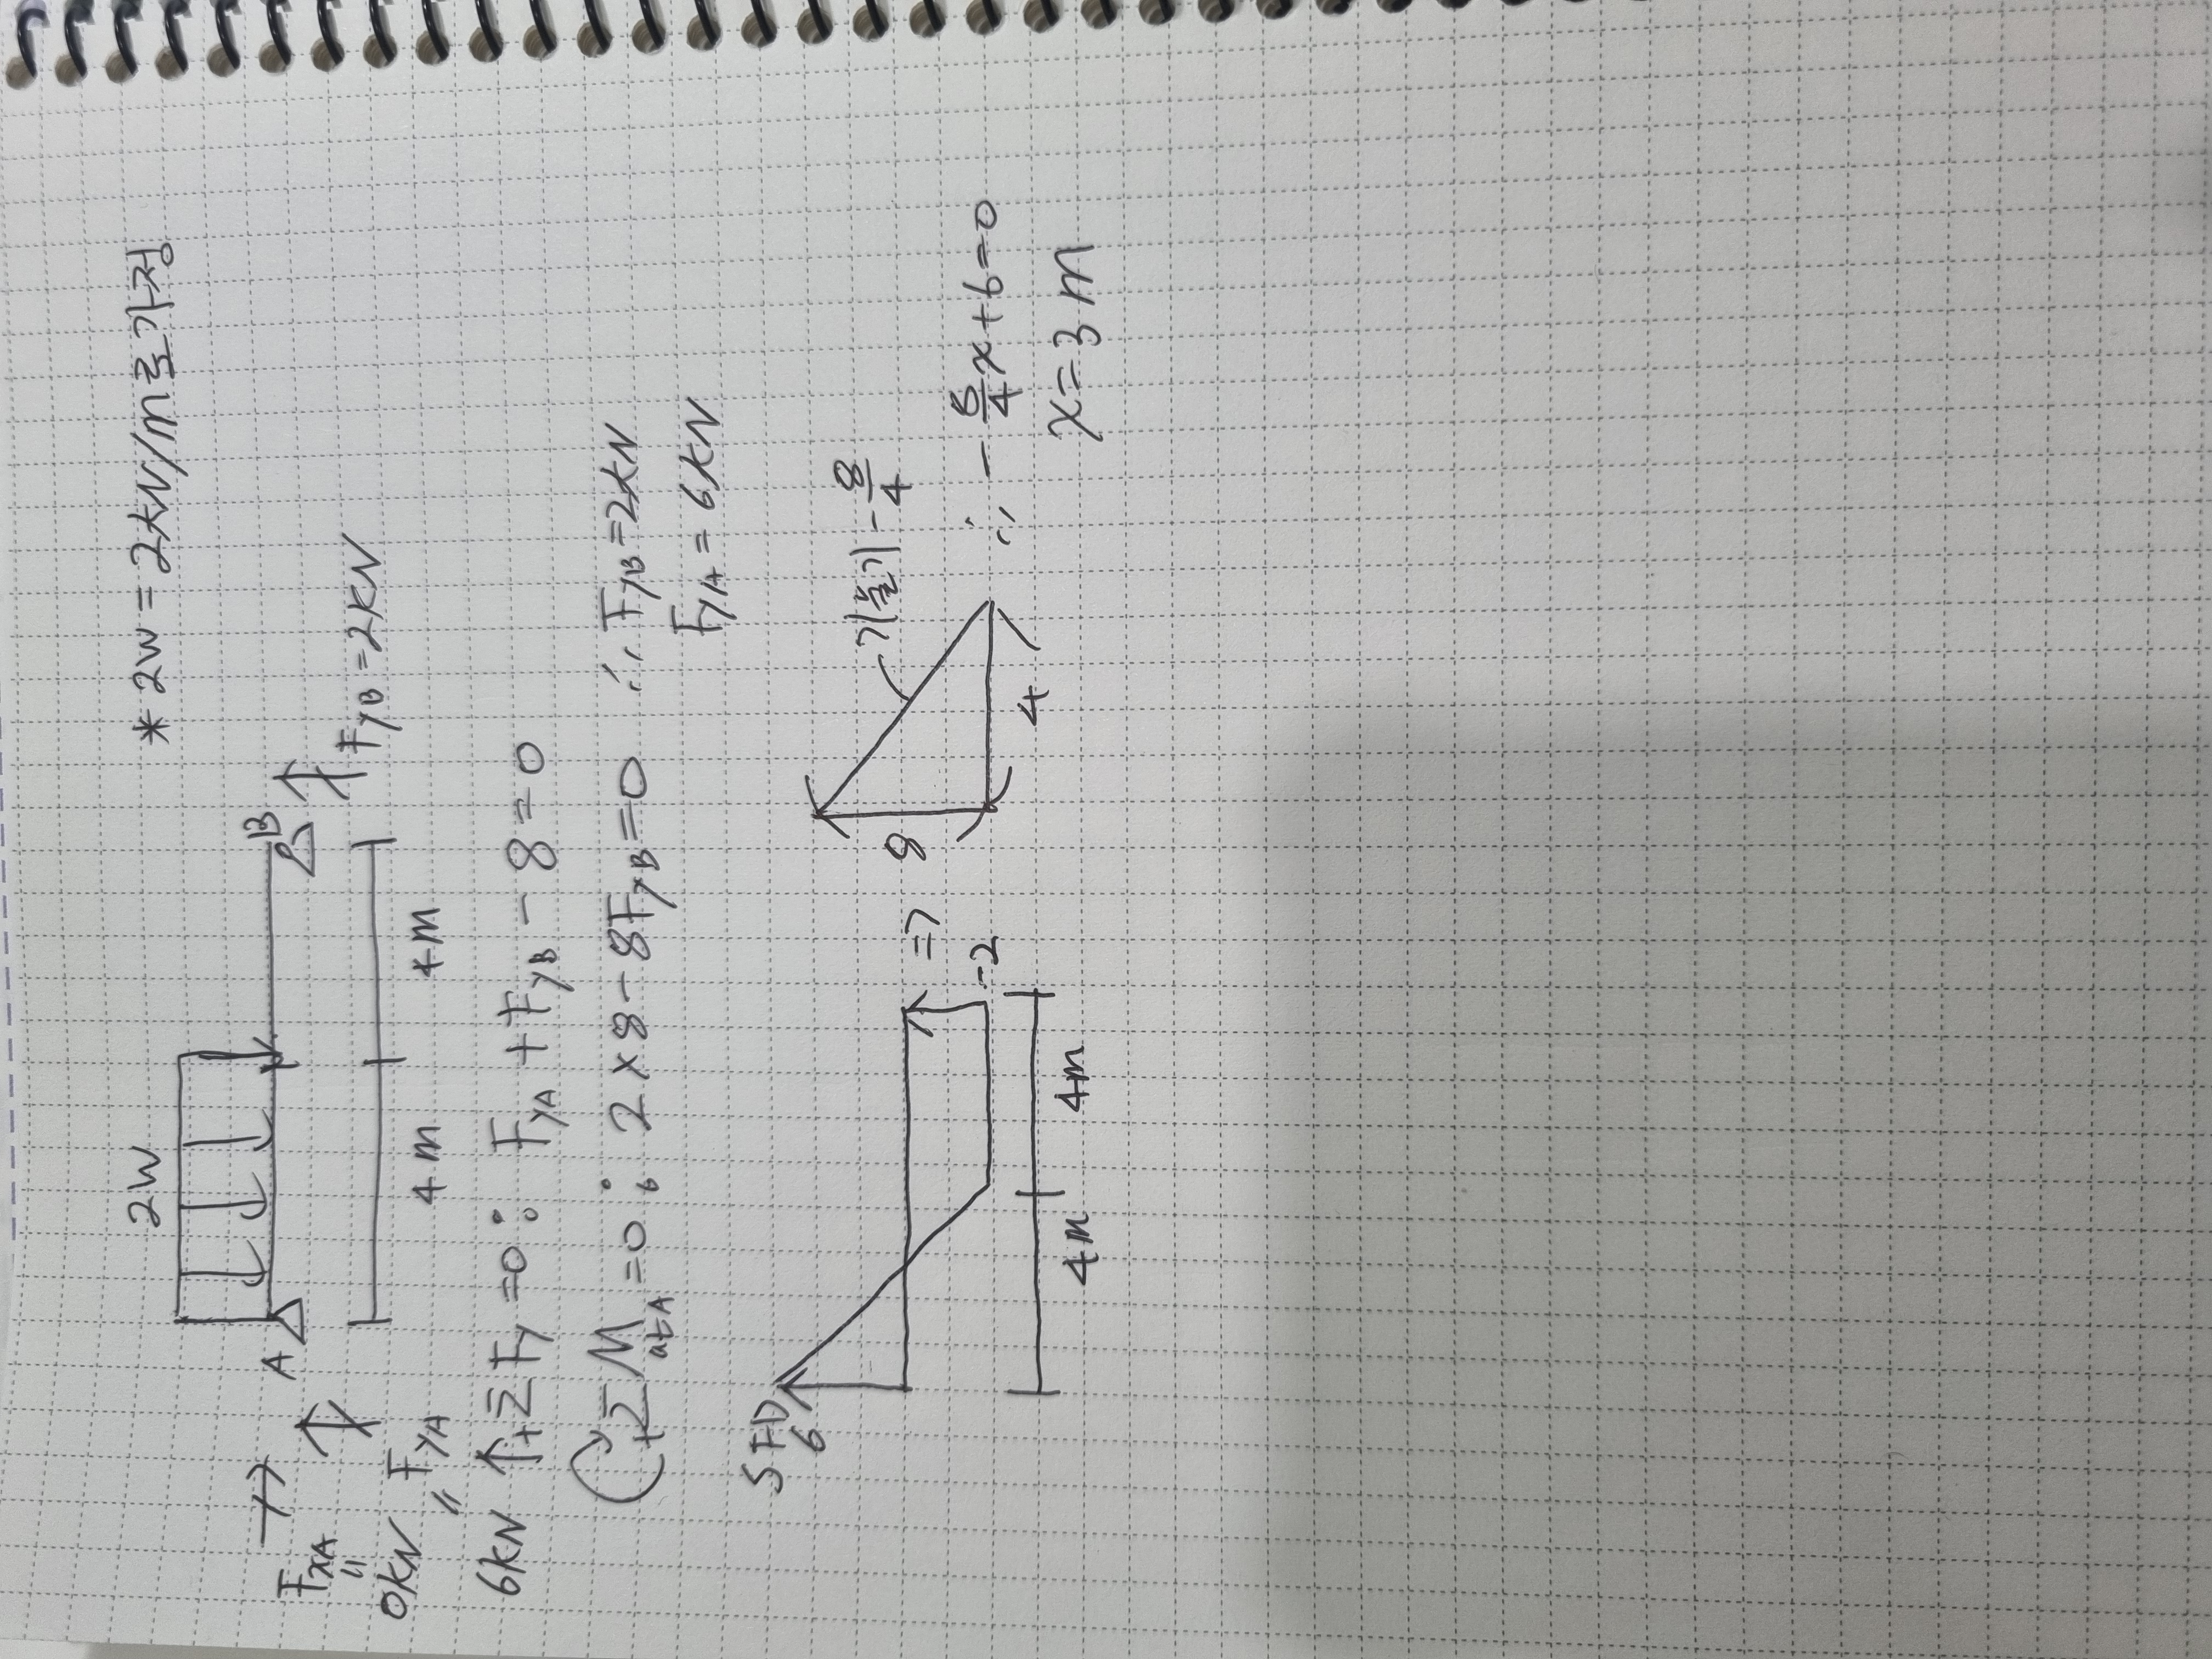 * 2w = 2kN/m로 가정
2w
A
B
F_xA
"
0kN
F_yA
"
6kN
F_yB = 2kN
4m
4m
↑+ΣF_y = 0 : F_yA + F_yB - 8 = 0
+ΣM_at A = 0 : 2×8-8F_yB = 0 ∴ F_yB = 2kN
F_yA = 6kN
SFD
6
-2
4m
4m
⇒
8
4
기울기 -8/4
∴ -8/4x+6=0
x=3m